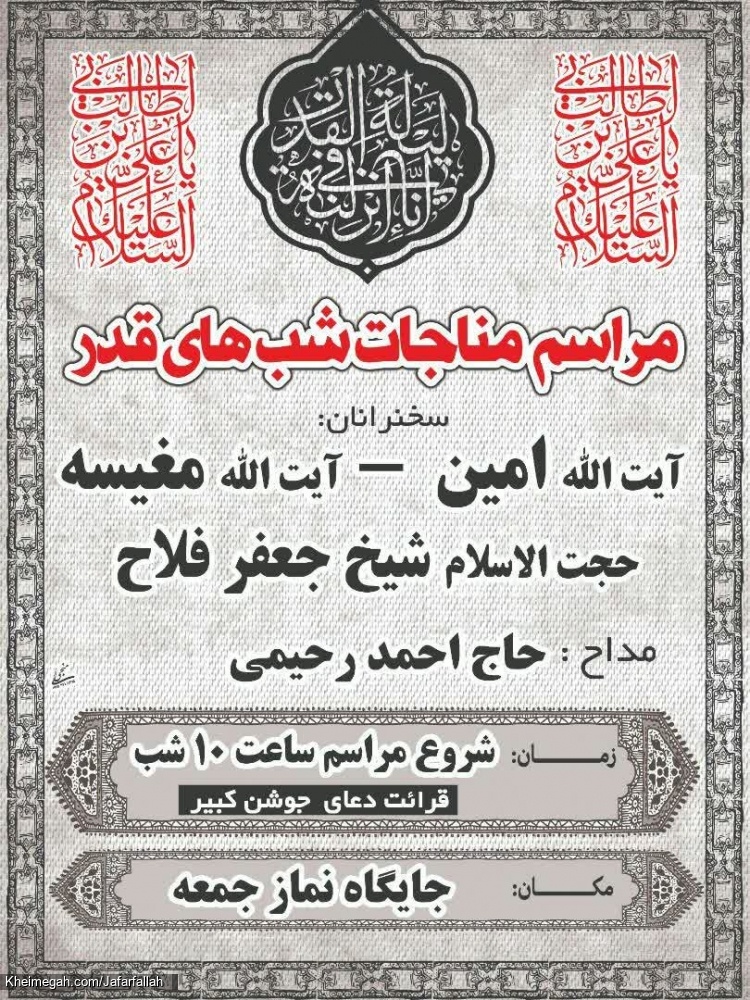 انا انزلناه فی لیلة القدر
السلام علیک یا علی بن ابی طالب
السلام علیک یا علی بن ابی طالب
مراسم مناجات شب‌های قدر
سخنرانان:
آیت الله امین – آیت الله مغیسه
حجت الاسلام شیخ جعفر فلاح
مداح: حاج احمد رحیمی
زمـــــان: شروع مراسم ساعت ۱۰ شب
قرائت دعای جوشن کبیر
مکـــــان: جایگاه نماز جمعه
Kheimegah.com/Jafarfallah